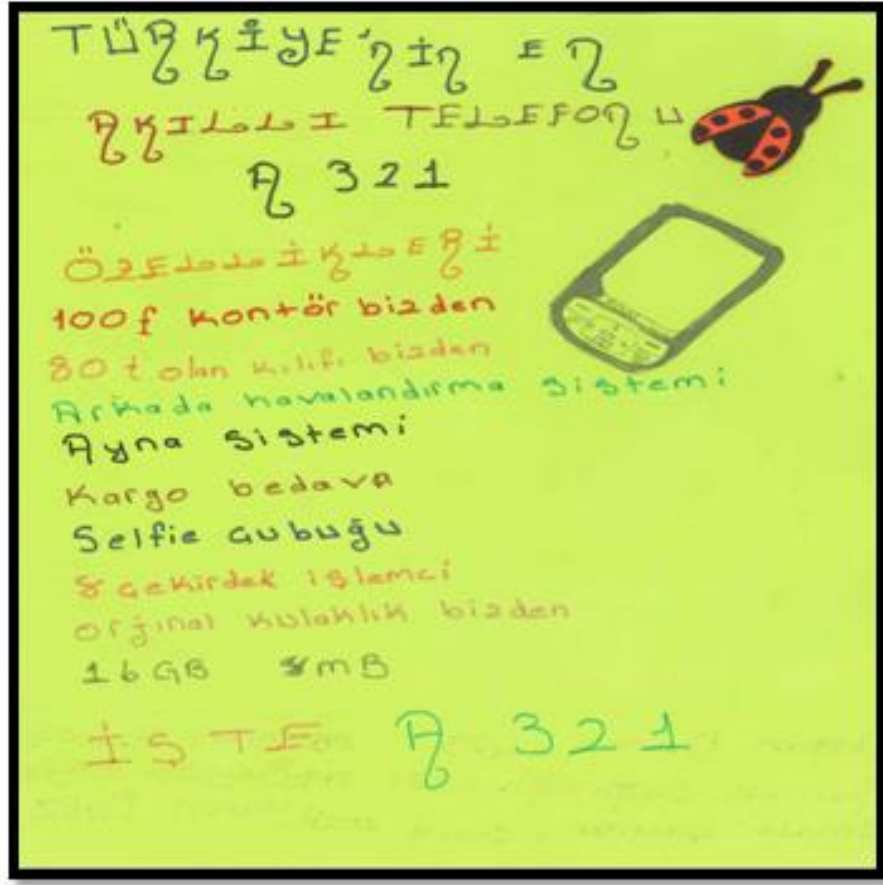 TÜRKİYE'NİN EN
AKILLI TELEFONU
A 321
ÖZELLİKLERİ
100₺ kontör bizden
80 ₺ olan kılıfı bizden
Arkada havalandırma sistemi
Ayna sistemi
Kargo bedava
Selfie çubuğu
8 çekirdek işlemci
orjinal kulaklık bizden
16 GB 8 MB
İŞTE A 321